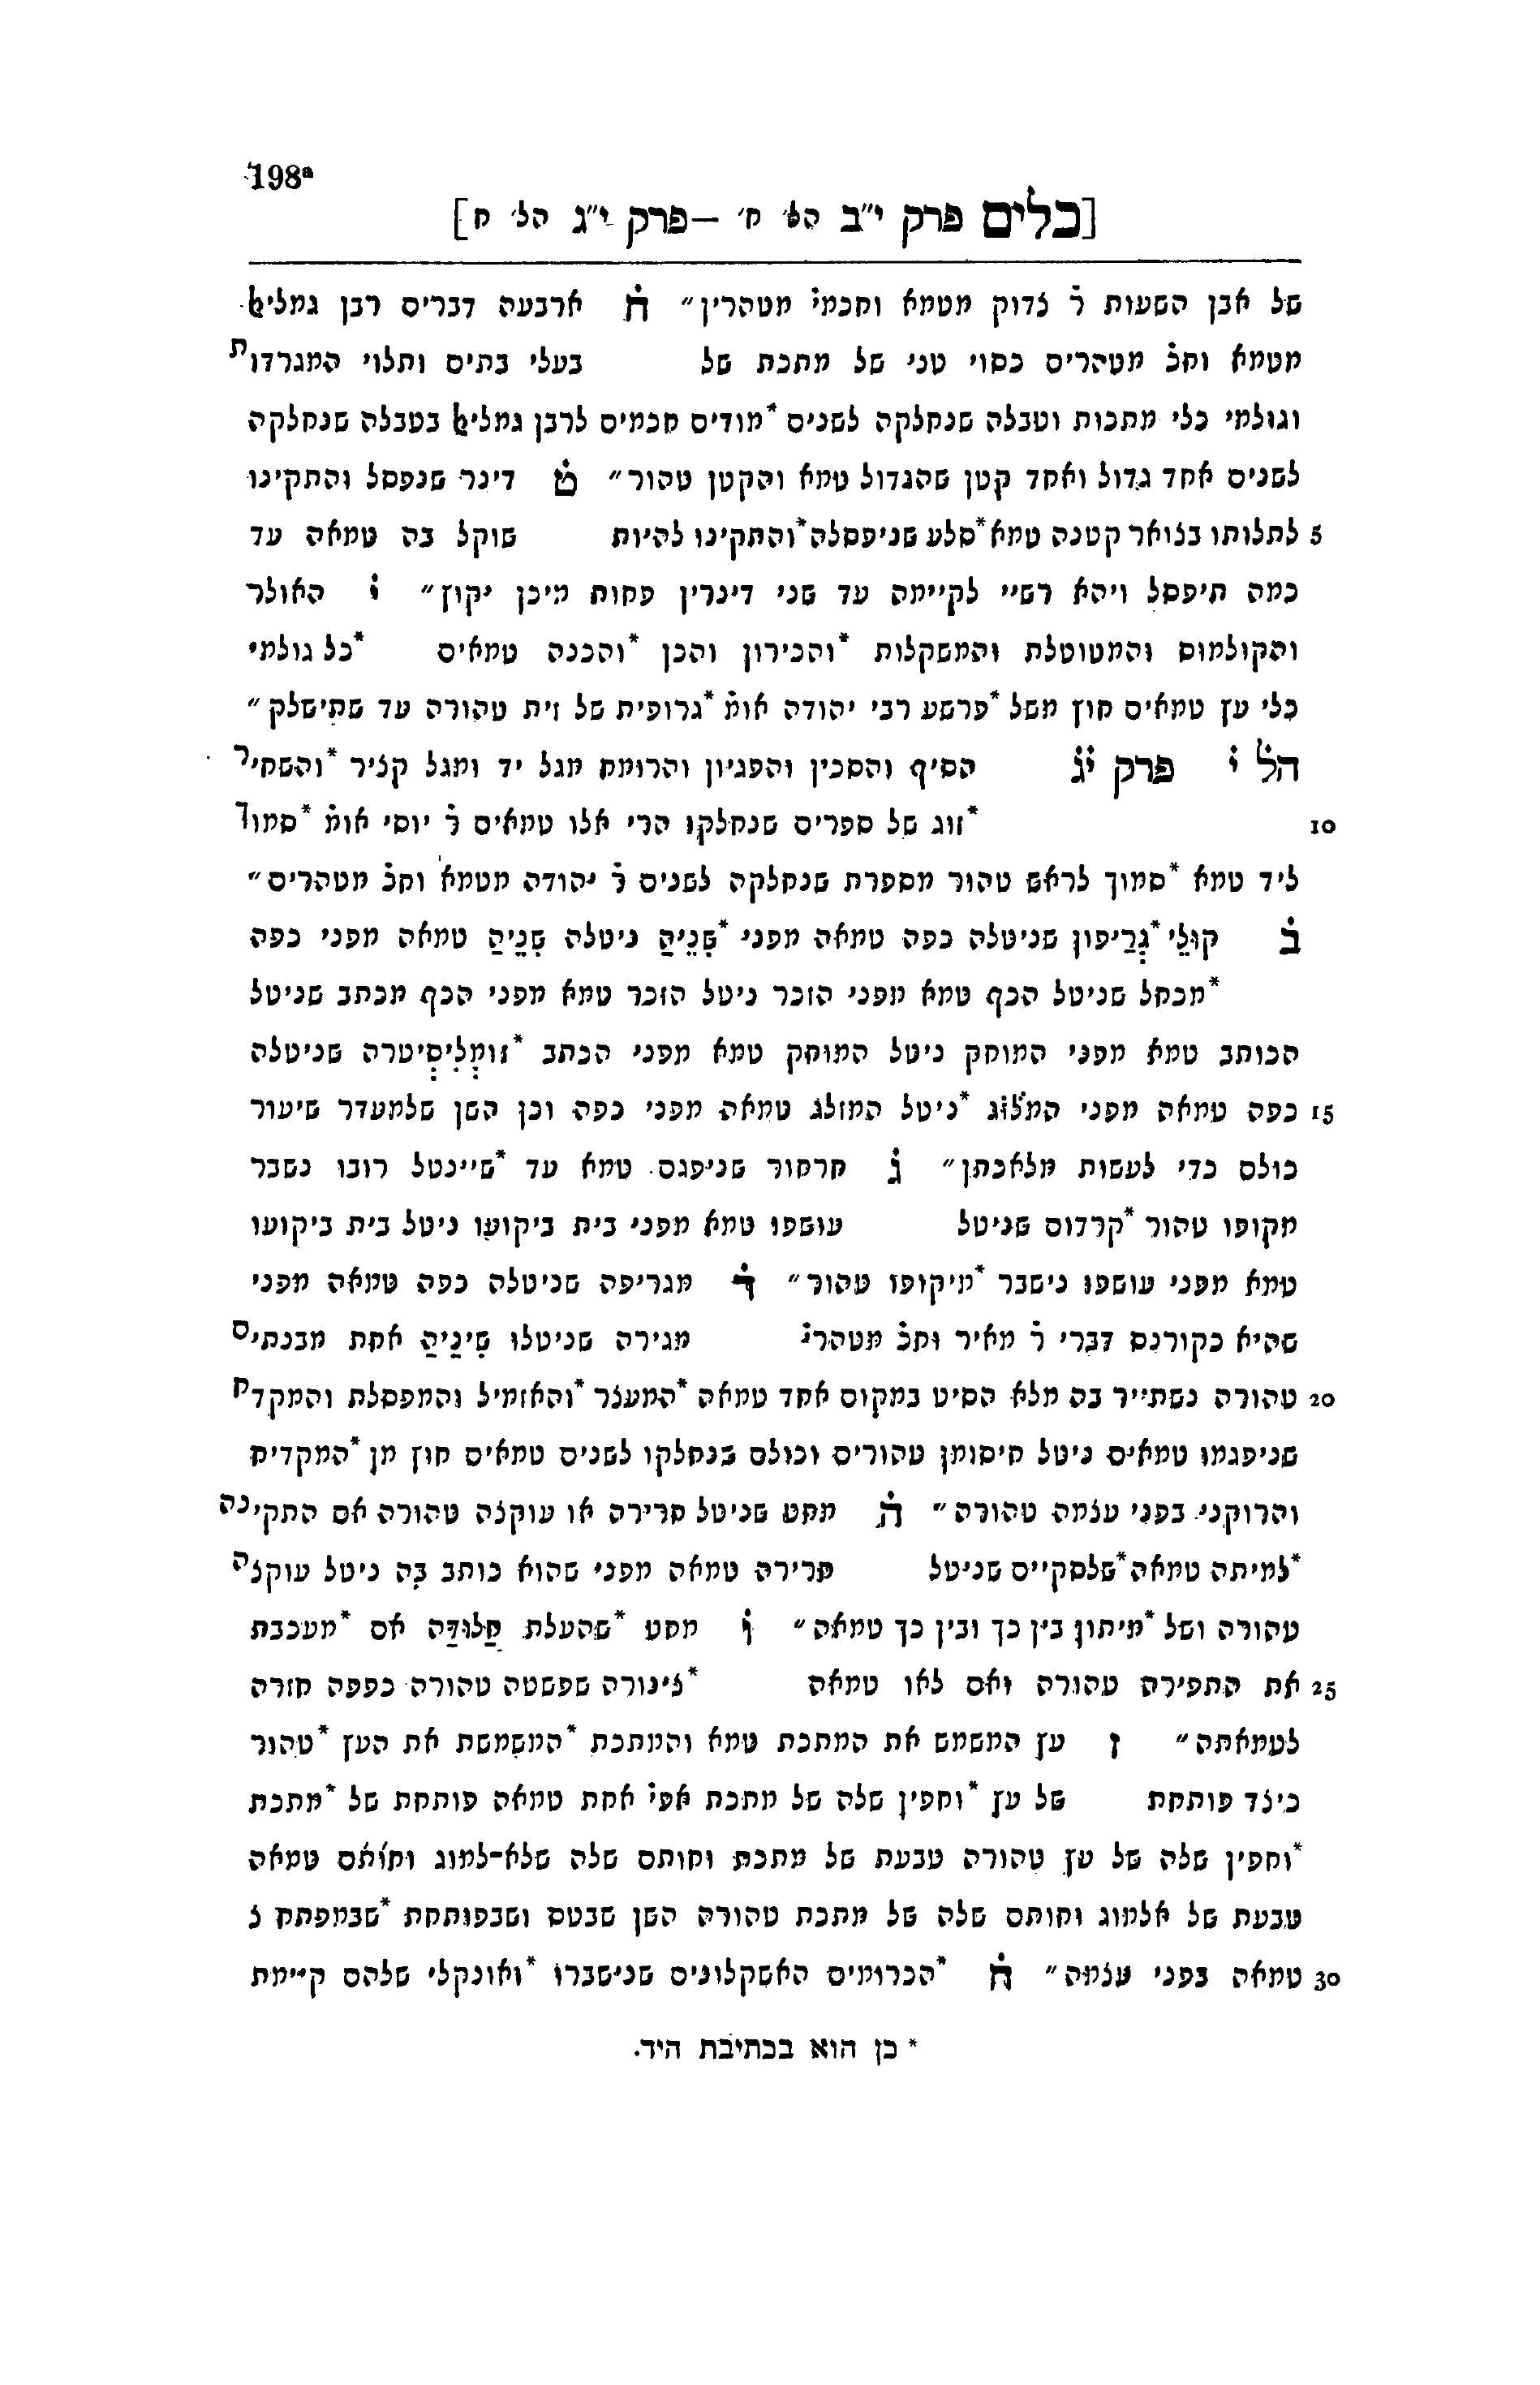 198a
[כלים פרק י״ב הל׳ ח׳ — פרק י״ג הל׳ ח]
של אבן השעות ר̇ צדוק מטמא וחכמי̇ מטהרין״ ח̇ ארבעה דברים רבן גמליאל
מטמא וחכ̇ מטהרים כסוי טני של מתכת של בעלי בתים ותלוי המגרדות
וגולמי כלי מתכות וטבלה שנחלקה לשנים *מודים חכמים לרבן גמליאל בטבלה שנחלקה
לשנים אחד גדול ואחד קטן שהגדול טמא והקטן טהור״ ט̇ דינר שנפסל והתקינו
5 לתלותו בצואר קטנה טמא *סלע שניפסלה *והתקינו להיות שוקל בה טמאה עד
כמה תיפסל ויהא רשיי לקיימה עד שני דינרין פחות מיכן יקוץ״ י̇ האולר
והקולמוס והמטוטלת והמשקלות *והכירון והכן *והכנה טמאים *כל גולמי
כלי עץ טמאים חוץ משל *פרשע רבי יהודה אומ̇ *גרופית של זית טהורה עד שתישלק״
הל̇ י̇ פרק י̇ג̇ הסיף והסכין והפגיון והרומח מגל יד ומגל קציר *והשחיר
10 *זוג של ספרים שנחלקו הרי אלו טמאים ר̇ יוסי אומ̇ *סמוך
ליד טמא *סמוך לראש טהור מספרת שנחלקה לשנים ר̇ יהודה מטמא וחכ̇ מטהרים״
ב̇ קוּלֵי *גְרֵיפון שניטלה כפה טמאה מפני *שִׁנֶיהַ ניטלה שִׁנֶיהַ טמאה מפני כפה
*מכחל שניטל הכף טמא מפני הזכר ניטל הזכר טמא מפני הכף מכתב שניטל
הכותב טמא מפני המוחק ניטל המוחק טמא מפני הכתב *זוּמְלִיסְיטרה שניטלה
15 כפה טמאה מפני המצ̇ו̇ג *ניטל המזלג טמאה מפני כפה וכן השן שלמעדר שיעור
כולם כדי לעשות מלאכתן״ ג̇ חרחור שניפגם טמא עד *שיינטל רובו נשבר
מקופו טהור *קרדום שניטל עושפו טמא מפני בית ביקועו ניטל בית ביקועו
טמא מפני עושפו נישבר *מיקופו טהור״ ד̇ מגריפה שניטלה כפה טמאה מפני
שהיא כקורנס דברי ר̇ מאיר וחכ̇ מטהרי̇ מגירה שניטלו שִׁינֶיהַ אחת מבנתים
20 טהורה נשתייר בה מלא הסיט במקום אחד טמאה *המעצר *והאזמיל והמפסלת והמקדח
שניפגמו טמאים ניטל חיסומן טהורים וכולם שנחלקו לשנים טמאים חוץ מן *המקדיח
והרוקני בפני עצמה טהורה״ ה̇ מחט שניטל חרירה או עוקצה טהורה אם התקינה
*למיתה טמאה *שלסקייס שניטל חרירה טמאה מפני שהוא כותב בה ניטל עוקצה
טהורה ושל *מיתון בין כך ובין כך טמאה״ ו̇ מחט *שהעלת חֲלוּדָה אם *מעכבת
25 את התפירה טהורה ואם לאו טמאה *צינורה שפשטה טהורה כפפה חזרה
לטמאתה״ ז̇ עץ המשמש את המתכת טמא והמתכת *המשמשת את העץ *טהור
כיצד פותחת של עץ *וחפין שלה של מתכת אפי̇ אחת טמאה פותחת של *מתכת
*וחפין שלה של עץ טהורה טבעת של מתכת וחותם שלה שלא-למוג וחותם טמאה
טבעת של אלמוג וחותם שלה של מתכת טהורה השן שבטס ושבפותחת *שבמפתח צ
30 טמאה בפני עצמה״ ח̇ *הכרומים האשקלונים שנישברו *ואונקלי שלהם קיימת
* כן הוא בכתיבת היד.